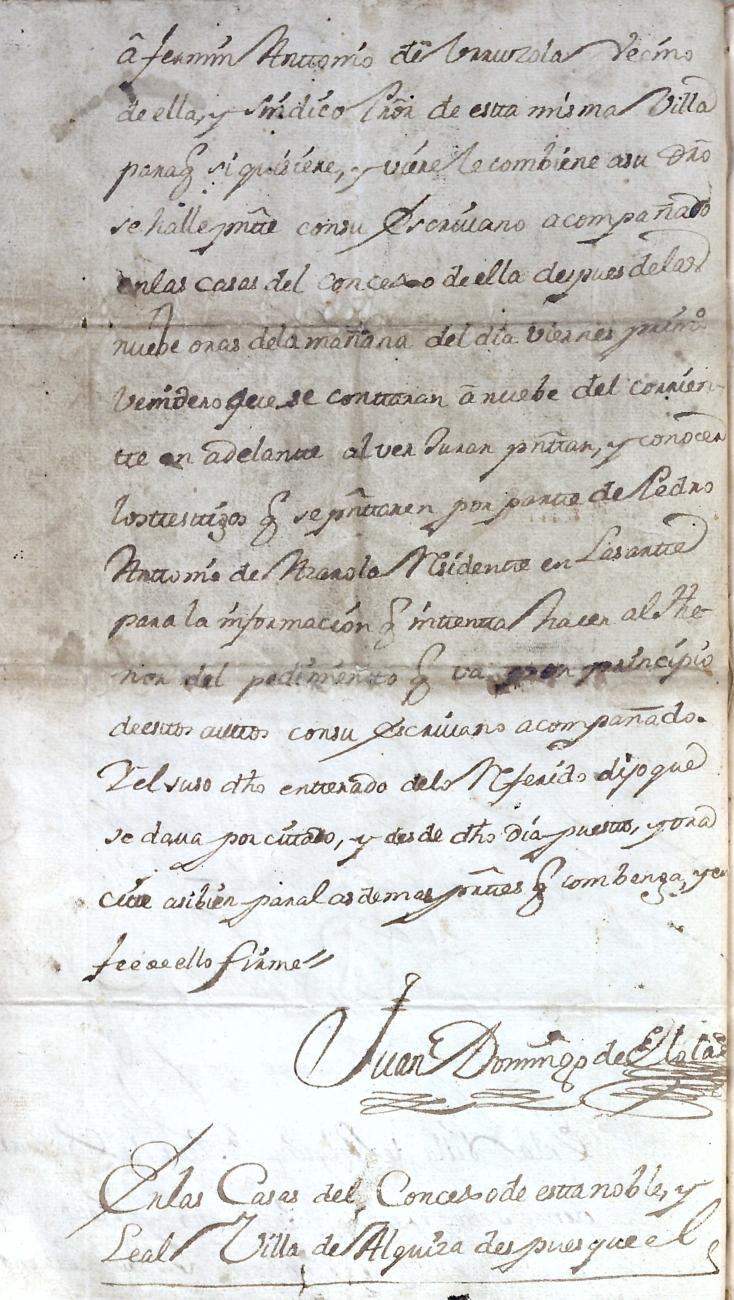 â fermin Anttonio de Urruzola Vecino
de ella, y sindico Pror de estta misma Villa
paraq si quisiere, y viere le combiene a su dro
se halle pntte consu Escrivano acompañado
enlas casas del concexo de ella despues delas
nuebe oras dela mañana del dia viernes primo
venidero que se conttaran â nuebe del corrien-
tte en adelantte al ver Jurar pnttar, y conocer
los ttesttigos q se pnttaren por partte de Pedro
Anttonio de Azarola Residentte en Lasartte
para la informacion q inttentta hacer al the-
nor del pedimiento q va por principio
de esttos auttos consu Escrivano acompañado.
Y el suso dho entterado delo Referido dijo que
se dava por cittado, y desde dho dia puestto, y ora
citte asibien paralas demas prttes q combenga, y en
fee de ello firme//
Juan Domingo de
Enlas Casas del Concexo de estta noble, y
Leal Villa de Alquiza despues que el